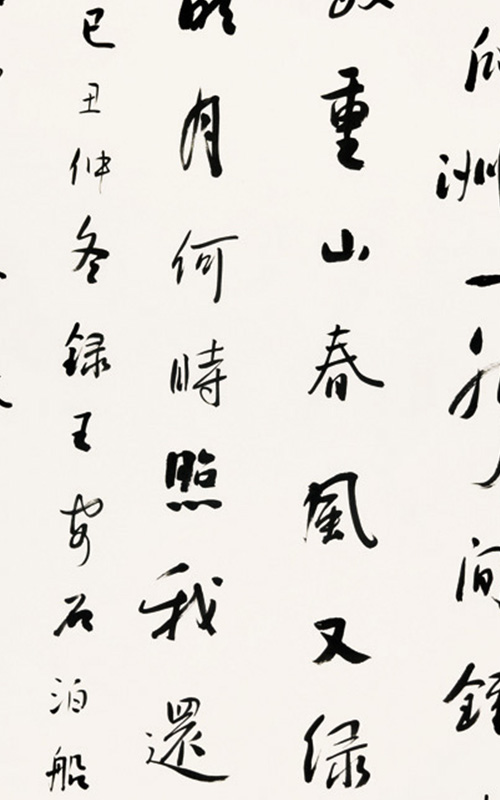 瓜洲一水間鍾
重山春風又緑
明月何時照我還
己丑仲冬録王安石泊船